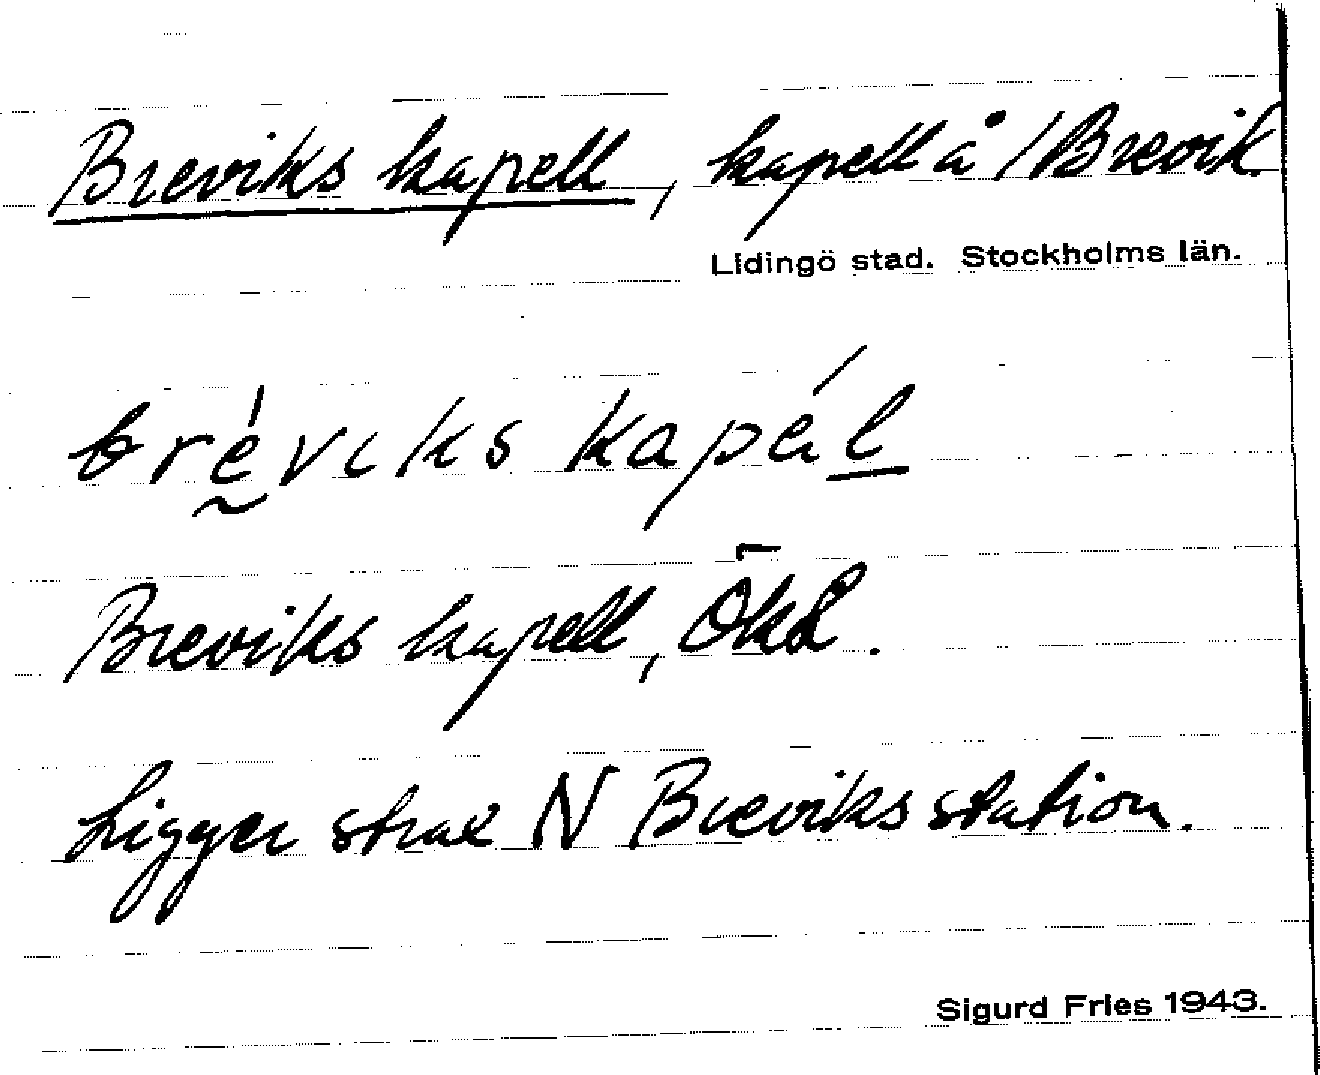 Breviks kapell, kapell å /Brevik.
Lidingö stad. Stockholms län.
bréviks kapäl
Breviks kapell, Ökl.
Ligger strax N Breviks station.
Sigurd Fries 1943.